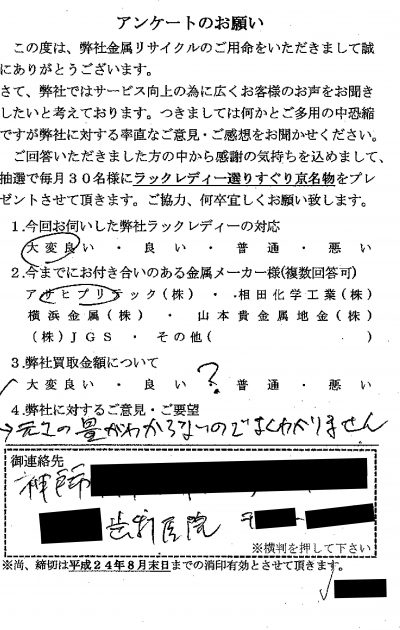 アンケートのお願い
この度は、弊社金属リサイクルのご用命をいただきまして誠
にありがとうございます。
さて、弊社ではサービス向上の為に広くお客様のお声をお聞き
したいと考えております。つきましては何かとご多用の中恐縮
ですが弊社に対する率直なご意見・ご感想をお聞かせください。
ご回答いただきました方の中から感謝の気持ちを込めまして、
抽選で毎月30名様にラックレディー選りすぐり京名物をプレ
ゼントさせて頂きます。ご協力、何卒宜しくお願い致します。
1.今回お伺いした弊社ラックレディーの対応
大変良い ・ 良い ・ 普通 ・ 悪い
2.今までにお付き合いのある金属メーカー様(複数回答可)
アサヒプリテック(株) ・ 相田化学工業(株)
横浜金属(株) ・ 山本貴金属地金(株)
(株)JGS ・ その他( )
3.弊社買取金額について
?
大変良い ・ 良い ・ 普通 ・ 悪い
4.弊社に対するご意見・ご要望
→元々の量がわからないのでよくわかりません
御連絡先
歯科医院 〒
※横判を押して下さい
※尚、締切は平成24年8月末日までの消印有効とさせて頂きます。